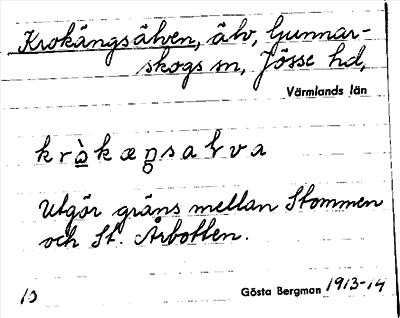 Krokängsälven, älv, Gunnar-
skogs sn, Jösse hd,
Värmlands län
kròkæŋsalva
Utgör gräns mellan Stommen
och St. Årbotten.
10
Gösta Bergman 1913-14